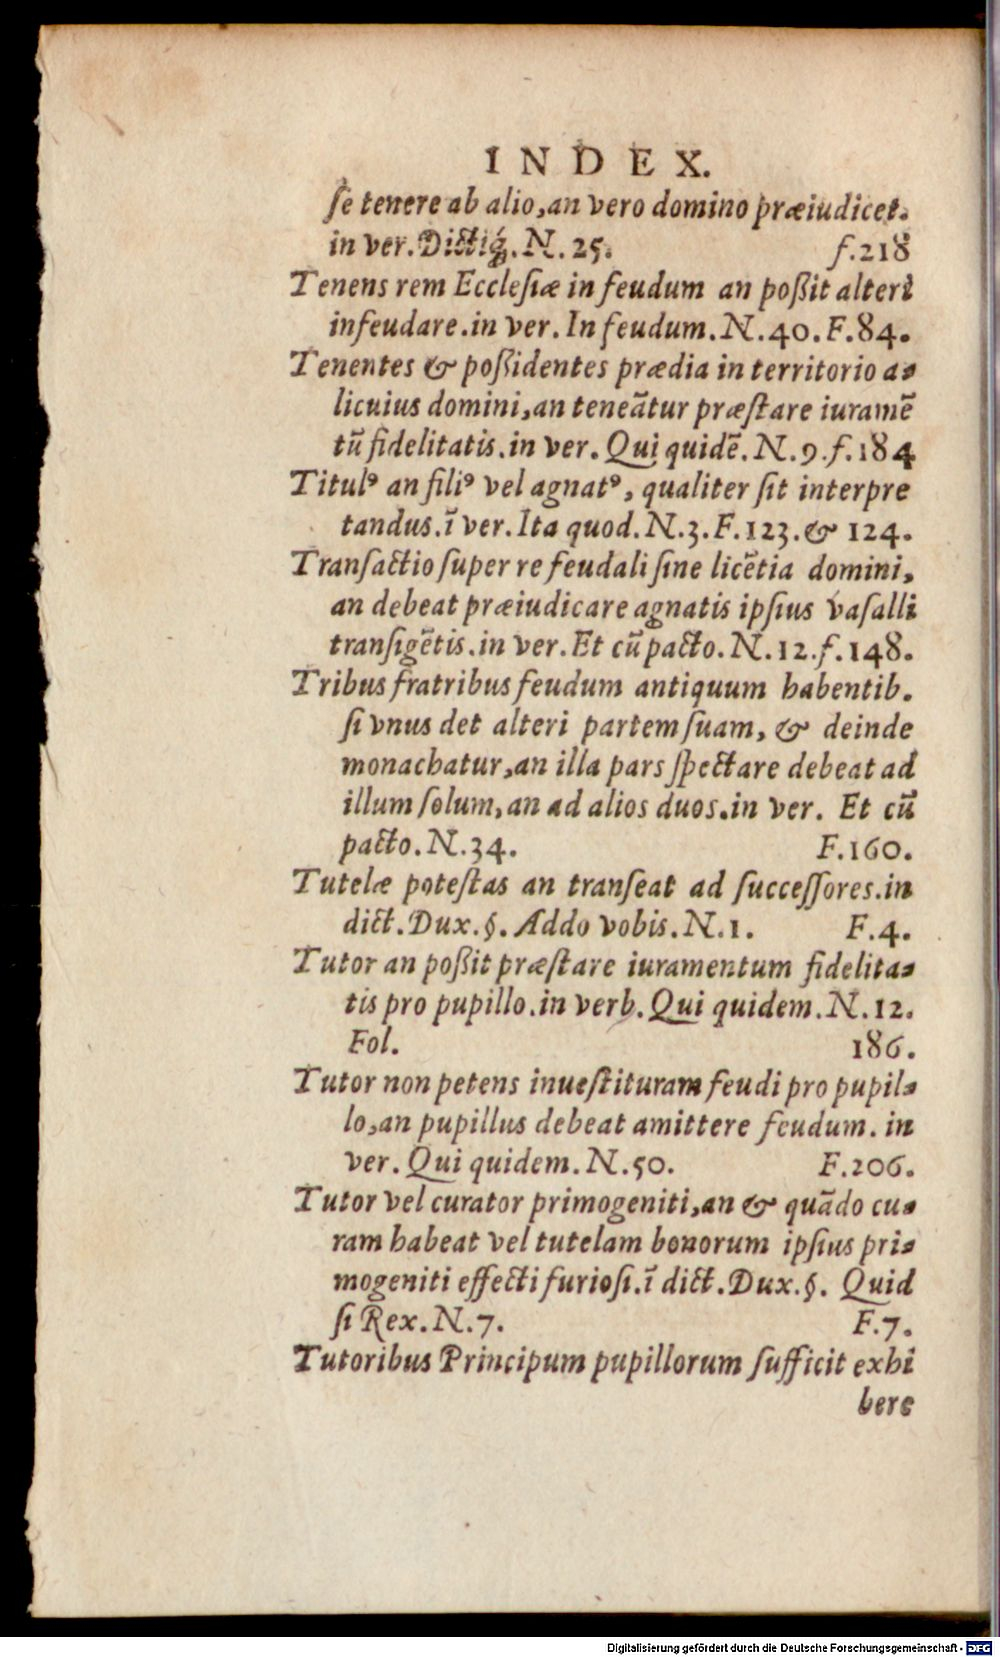 INDEX.
ſe tenere ab alio,an vero domino præiudicet.
in ver.Dictiq́;.N.25. f.218
Tenens rem Eccleſiæ in feudum an poßit alteri
infeudare.in ver.In feudum.N.40.F.84.
Tenentes & poßidentes prædia in territorio a-
licuius domini,an teneãtur præſtare iuramẽ
tũ fidelitatis.in ver.Qui quidẽ.N.9.f.184
Titulꝰ an filiꝰ vel agnatꝰ, qualiter ſit interpre
tandus.ĩ ver.Ita quod.N.3.F.123.& 124.
Tranſactio ſuper re feudali ſine licẽtia domini,
an debeat præiudicare agnatis ipſius vaſalli
tranſigẽtis.in ver.Et cũ pacto.N.12.f.148.
Tribus fratribus feudum antiquum habentib.
ſi vnus det alteri partem ſuam, & deinde
monachatur,an illa pars ſpectare debeat ad
illum ſolum,an ad alios duos.in ver. Et cũ
pacto.N.34. F.160.
Tutelæ poteſtas an tranſeat ad ſucceſſores.in
dict.Dux.§.Addo vobis.N.1. F.4.
Tutor an poßit præſtare iuramentum fidelita-
tis pro pupillo.in verb.Qui quidem.N.12.
Fol. 186.
Tutor non petens inueſtituram feudi pro pupil-
lo,an pupillus debeat amittere feudum. in
ver.Qui quidem.N.50. F.206.
Tutor vel curator primogeniti,an & quãdo cu-
ram habeat vel tutelam bonorum ipſius pri-
mogeniti effecti furioſi.ĩ dict.Dux.§. Quid
ſi Rex.N.7. F.7.
Tutoribus Principum pupillorum ſufficit exhi
bere
Digitalisierung gefördert durch die Deutsche Forschungsgemeinschaft - DFG